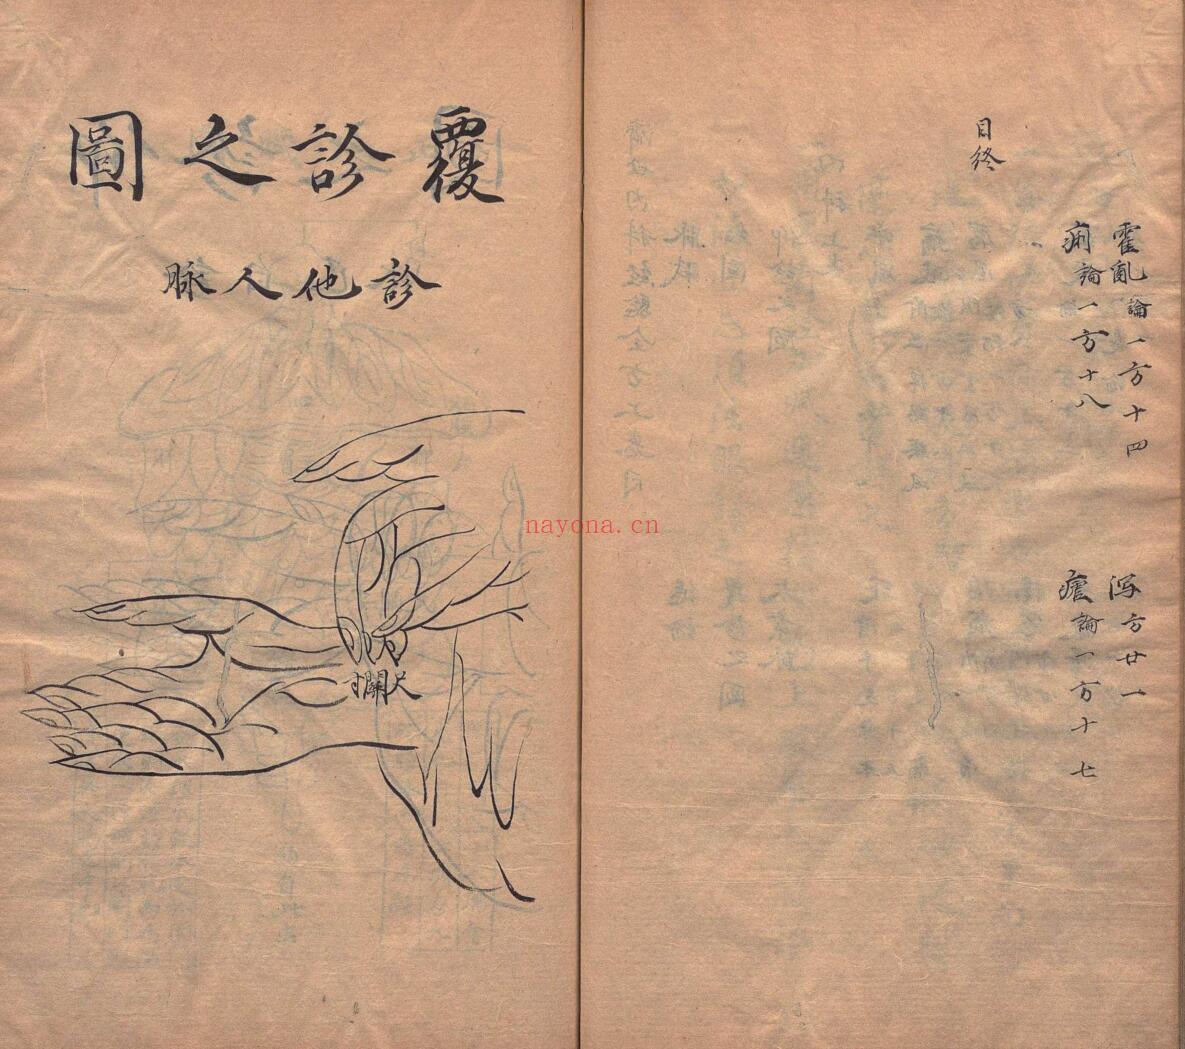 霍亂論一方十四
瀉方廿一
痢論一方十八
瘧論一方十七
目終
覆診之圖
診他人脉
寸關尺
nayona.cn